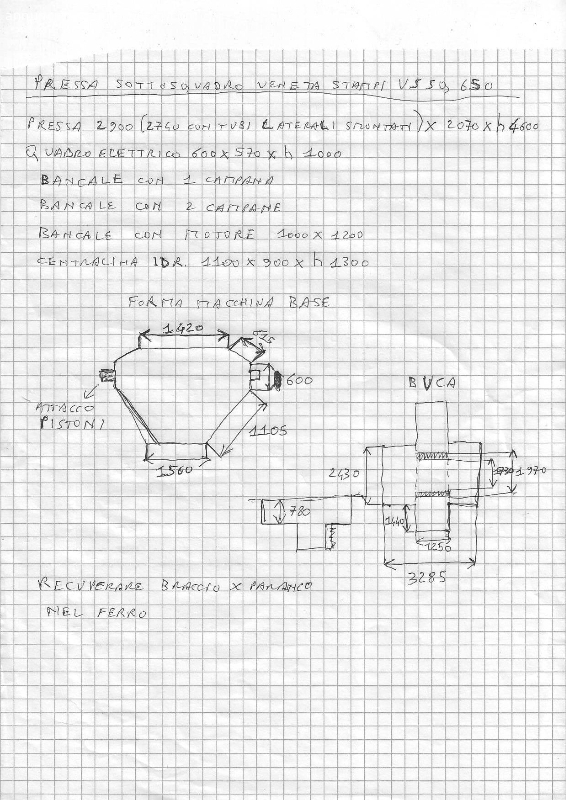 PRESSA SOTTOSQUADRO VENETA STAMPI VSSQ 650
PRESSA 2900 (2740 CON TUBI LATERALI SMONTATI) X 2070 X h 4600
QUADRO ELETTRICO 600 X 570 X h 1000
BANCALE CON 1 CAMPANA
BANCALE CON 2 CAMPANE
BANCALE CON MOTORE 1000 X 1200
CENTRALINA IDR. 1100 X 900 X h 1300
FORMA MACCHINA BASE
1420
600
BUCA
ATTACCO
PISTONI
1105
1560
2430
1970
780
1440
1250
3285
RECUPERARE BRACCIO X PARANCO
NEL FERRO